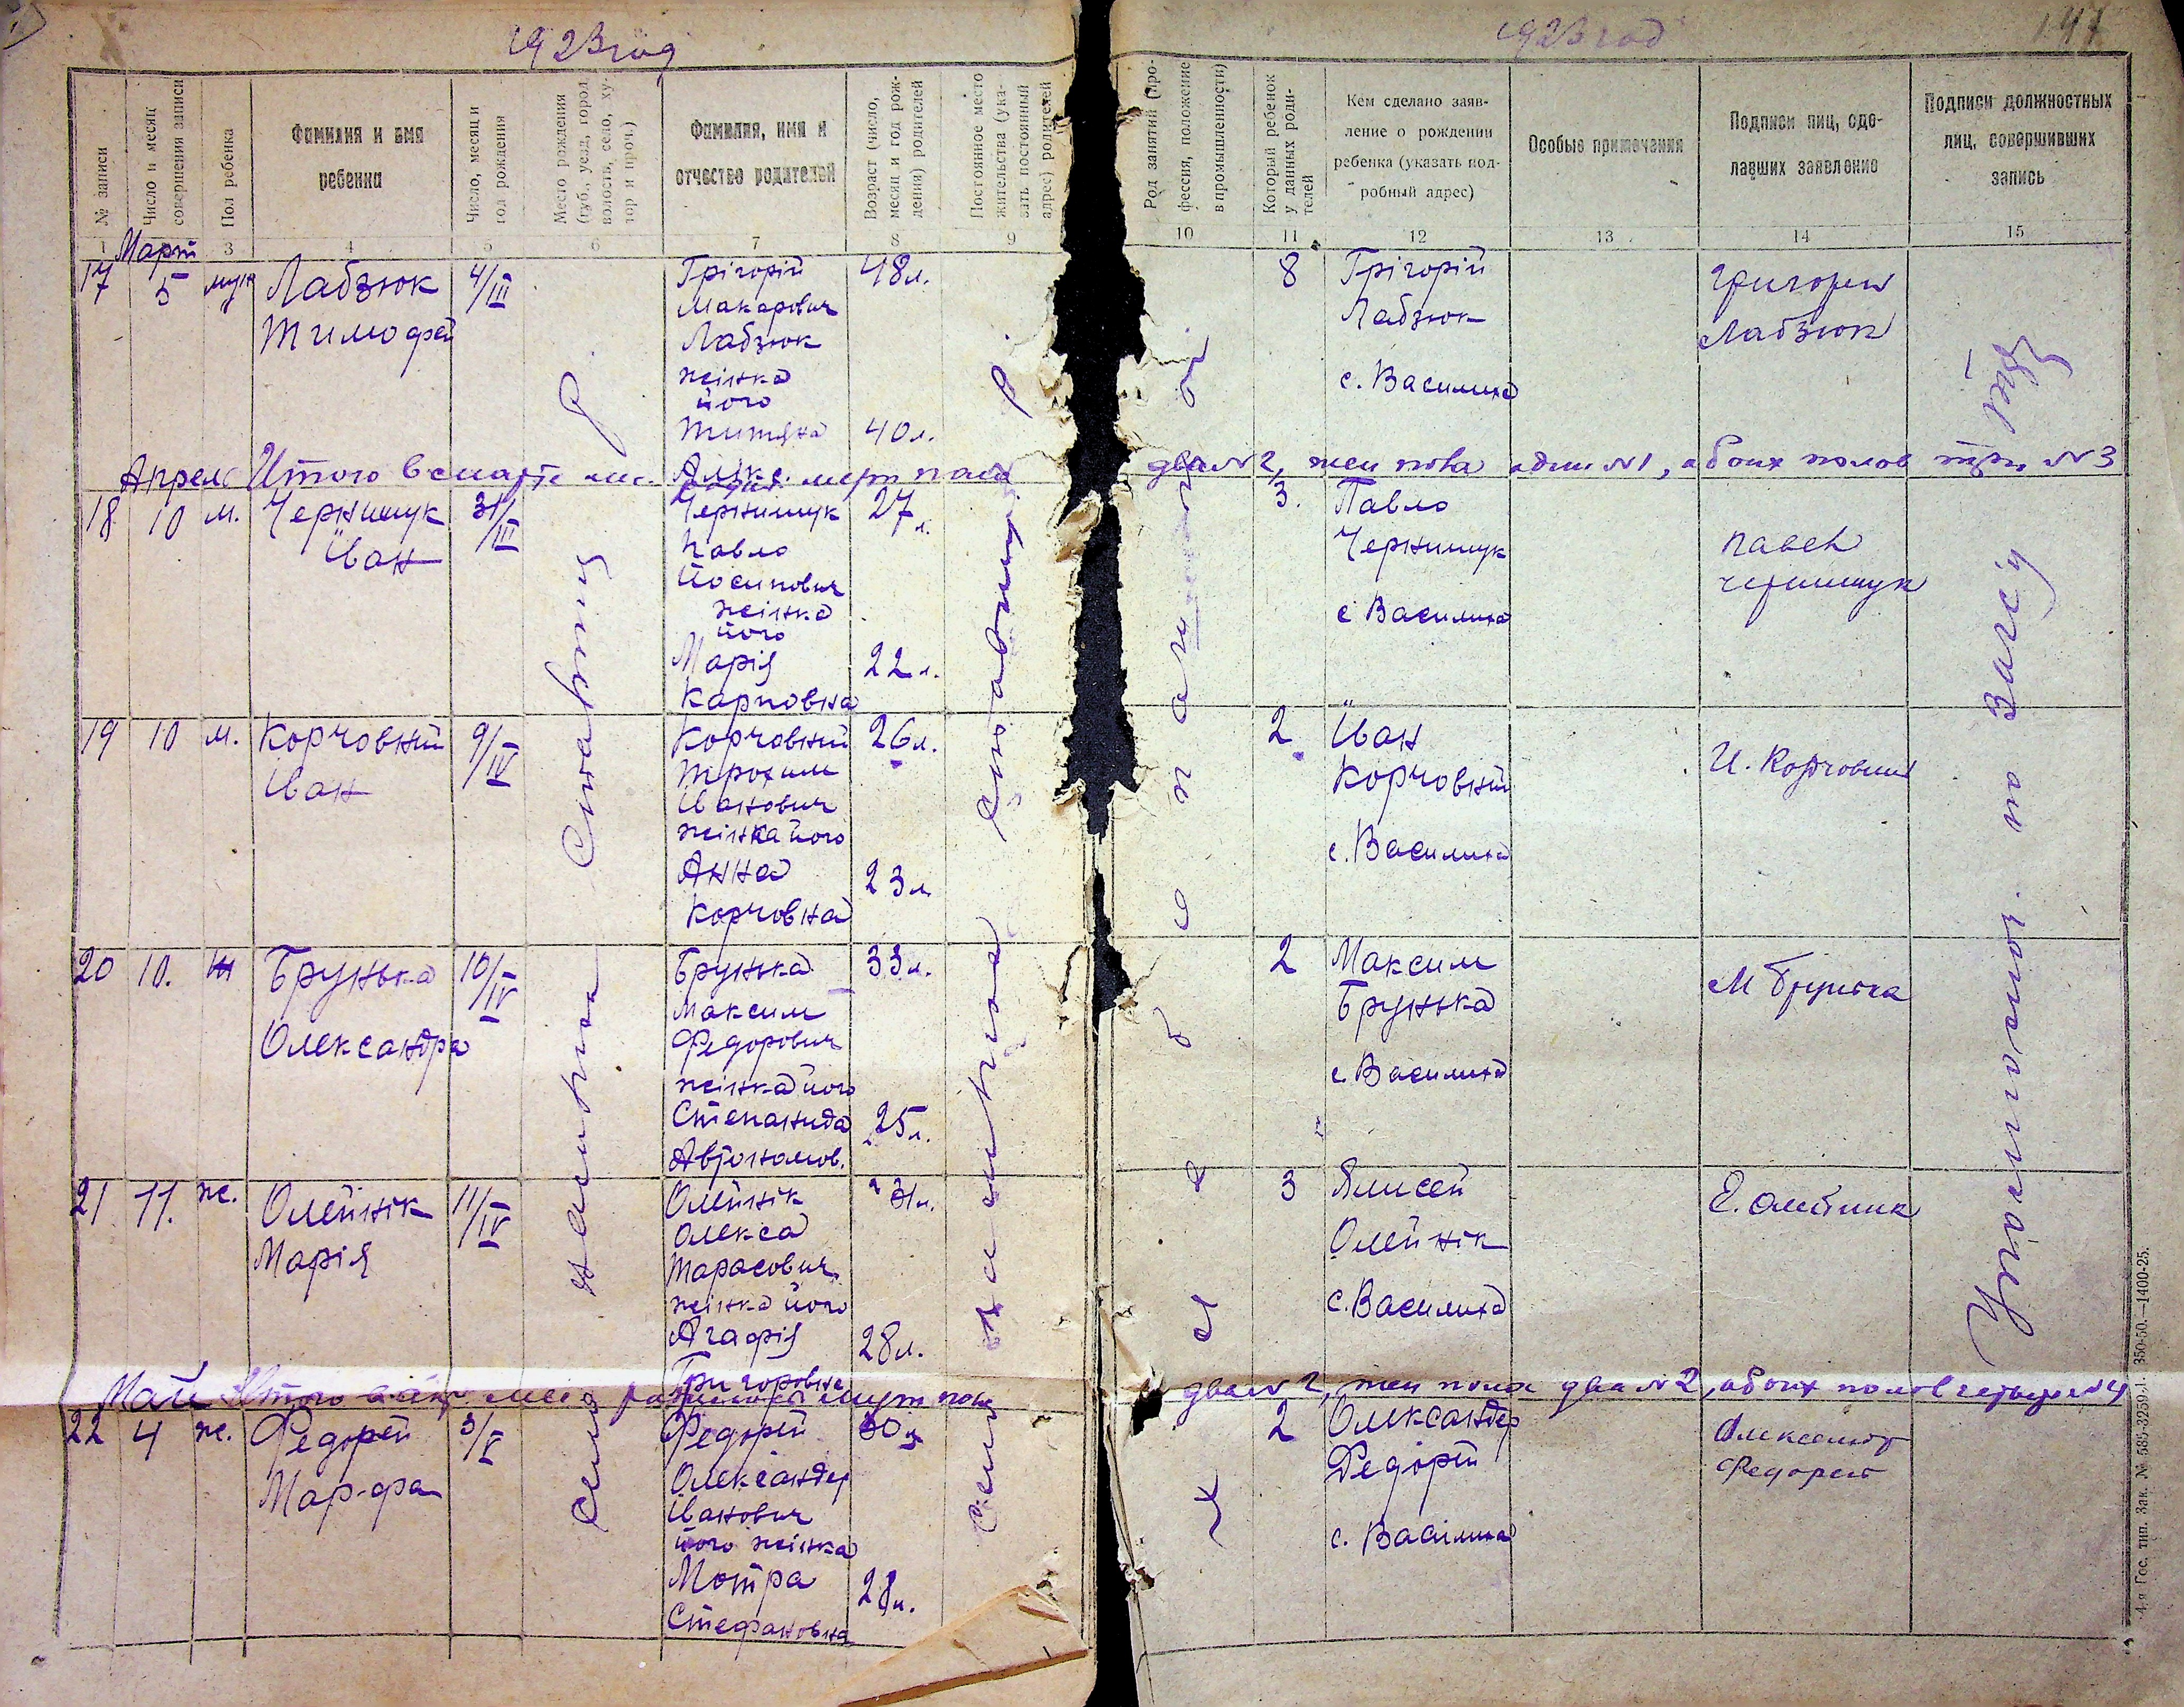 1923 год
1923 год
147
№ записи
Число и месяц совершения записи
Пол ребенка
Фамилия и имя
ребенка
Число, месяц и
год рождения
Место рождения
(губ., уезд, город
волость, село, ху-
тор и проч.)
Фамилия, имя и
отчество родителей
Возраст (число,
месяц и год рож-
дения) родителей
Постоянное место
жительства (ука-
зать постоянный
адрес) родителей
Род занятий (про-
фессия, положение
в промышленности)
Который ребенок
у данных роди-
телей
Кем сделано заяв-
ление о рождении
ребенка (указать под-
робный адрес)
Особые примечания
Подписи лиц, сде-
лавших заявление
Подписи должностных
лиц, совершивших
запись
1 3 4 5 6 7 8 9 10 11 12 13 14 15
Март
17 5 муж Лабзюк 4/III
Тимофей
Грігорій 48 л.
Макарович
Лабзюк
жінка
його
Титяна 40 л.
8 Грігорій
Лабзюк
с. Василиха
Григорий
Лабзюк
Апрель Итого в марте мес. муж пола два №2, жен пола один №1, обоих полов три №3
18 10 м. Чернишук 31/III
Іван
Чернишук 27 л.
Павло
Йосипович
жінка
його
Марія 22 л.
Карповна
3. Павло
Чернишук
с Василиха
Павел
Чернишук
19 10 м. Корчовний 9/IV
Іван
Корчовний 26 л.
Трохим
Іванович
жінка його
Анна 23 л
Корчовна
2 Іван
Корчовний
с. Василиха
И. Корчовний
20 10. ж Брунька 10/IV
Олександра
Брунька 33 л.
Максим
Федорович
жінка його
Степанида 25 л.
Автономов.
2 Максим
Брунька
с. Василиха
М Брунька
21 11. ж. Олейнік 11/IV
Марія
Олейнік 31 л.
Олекса
Тарасович
жінка його
Агафія 28 л.
Григоровна
3 Ялисей
Олейнік
с. Василиха
Е. Олейник
Май Итого муж пола два №2, жен пола два №2, обоих полов четыре №4
22 4 ж. Федорей 3/V
Марфа
Федорей 30 л
Олександер
Іванович
його жінка
Мотра 28 л.
Стефановна
2 Олександер
Федорей
с. Василиха
Александр
Федорей
Село
Село
Хлебопашество
по Загсу
4-я Гос. тип. Зак. № 585-3259-1. 350-50.—1400-25.